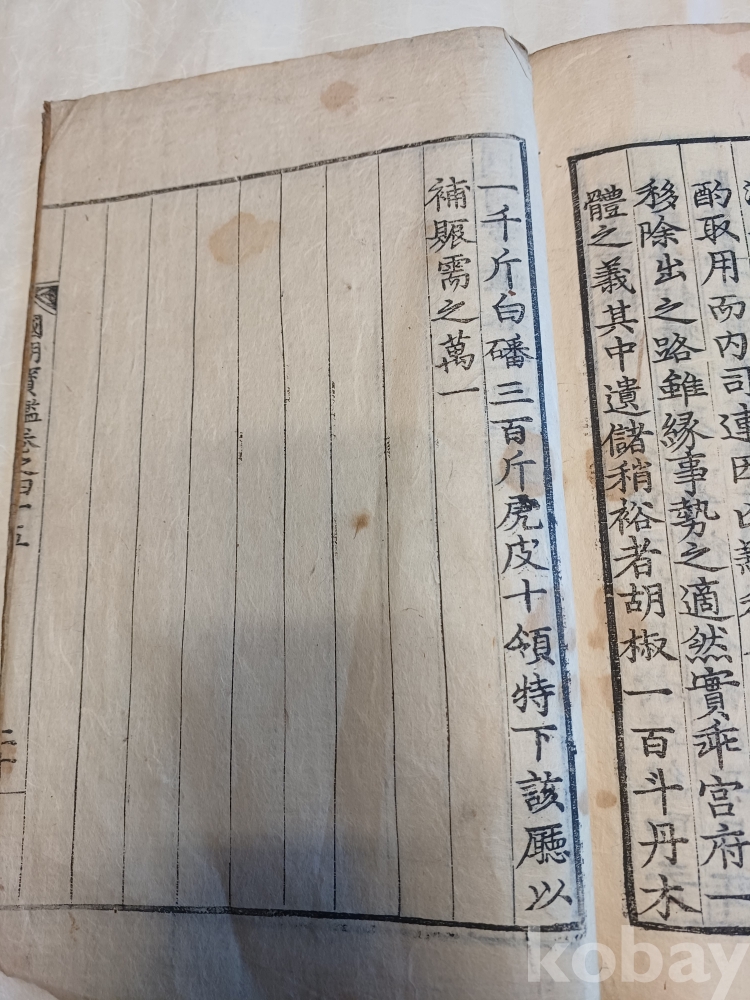 酌取用而内司連因
移除出之路雖緣事勢之適然實乖宮府一
體之義其中遺儲稍裕者胡椒一百斗丹木
一千斤白磻三百斤虎皮十領特下該廳以
補賑需之萬一
國朝寶鑑卷之四十五
二十
kobay